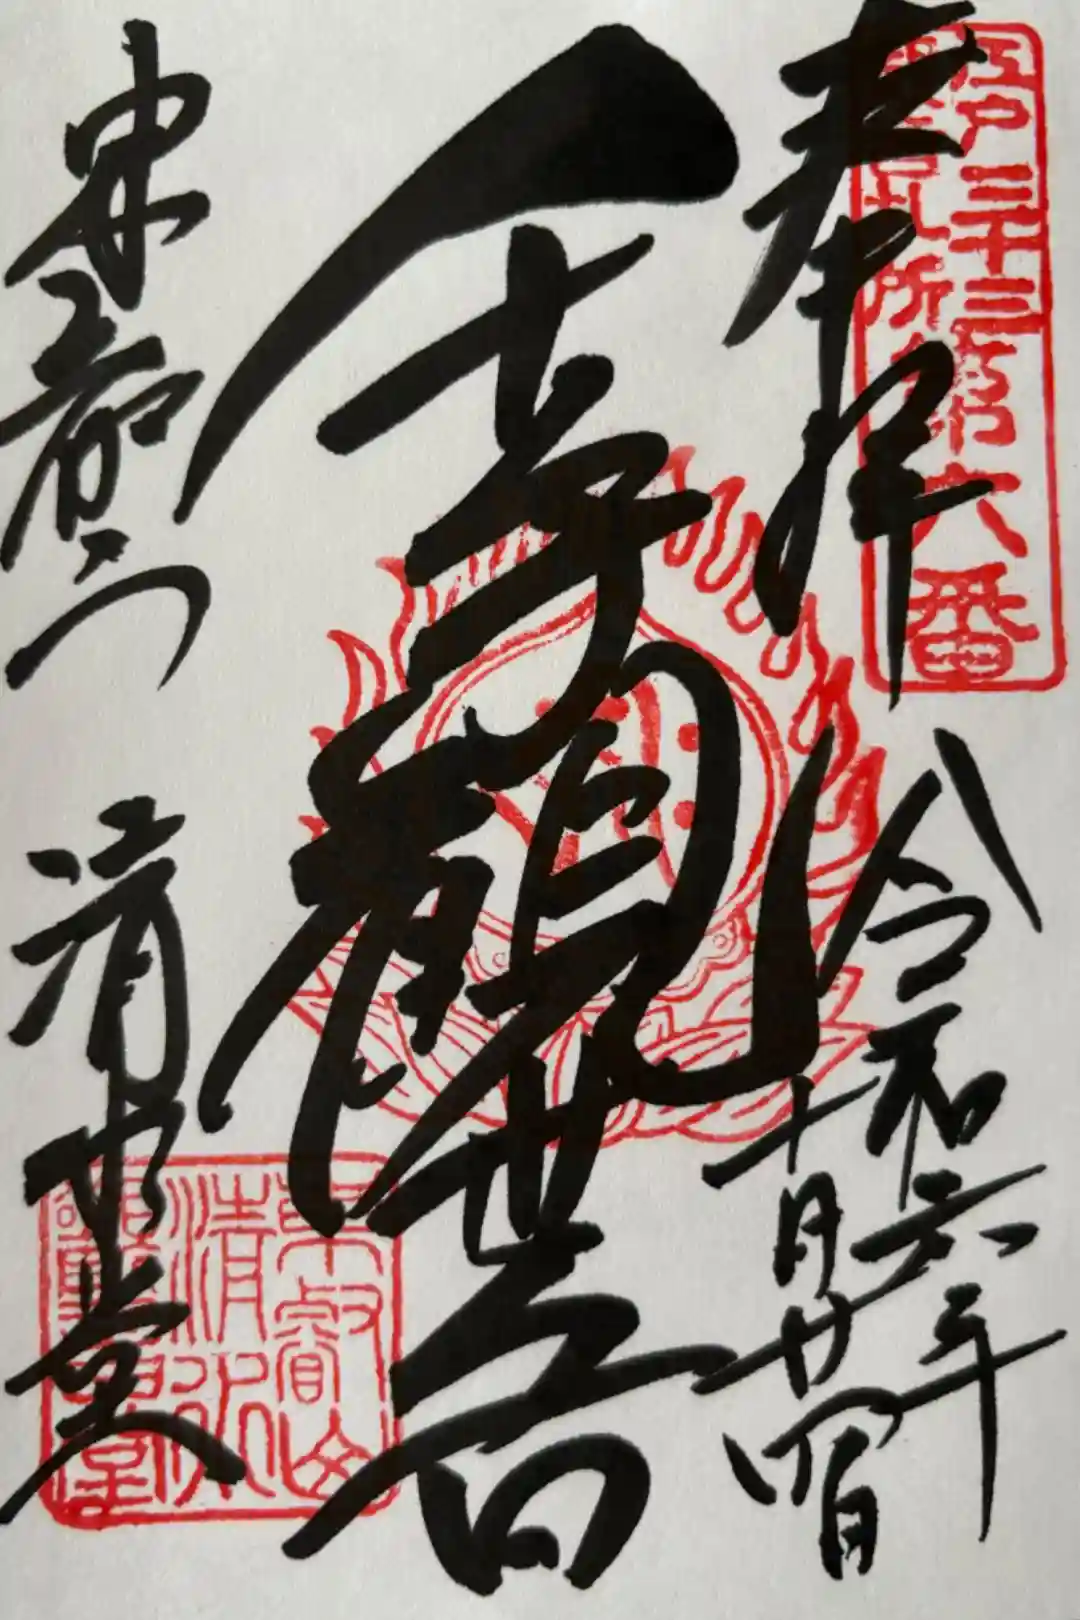 江戸三十三
観音札所
第六番
奉拝
令和六年
十月廿四日
千手観世音
清水堂
東叡山
清水
観音堂